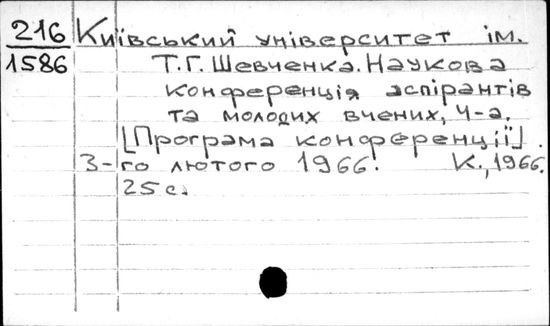 216
1586
Київський університет ім.
Т.Г. Шевченка. Наукова
конференція аспірантів
та молодих вчених, 4-а.
[Програма конференції].
3-го лютого 1966. К., 1966.
25 с.